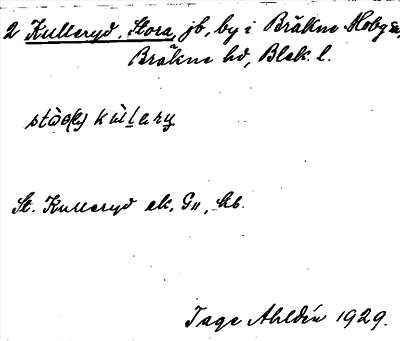 2 Kulleryd, Stora, jb, by i Bräkne Hoby sn,
Bräkne hd, Blek. l.
St. Kulleryd ek, G11, kb.
Tage Ahldén 1929.